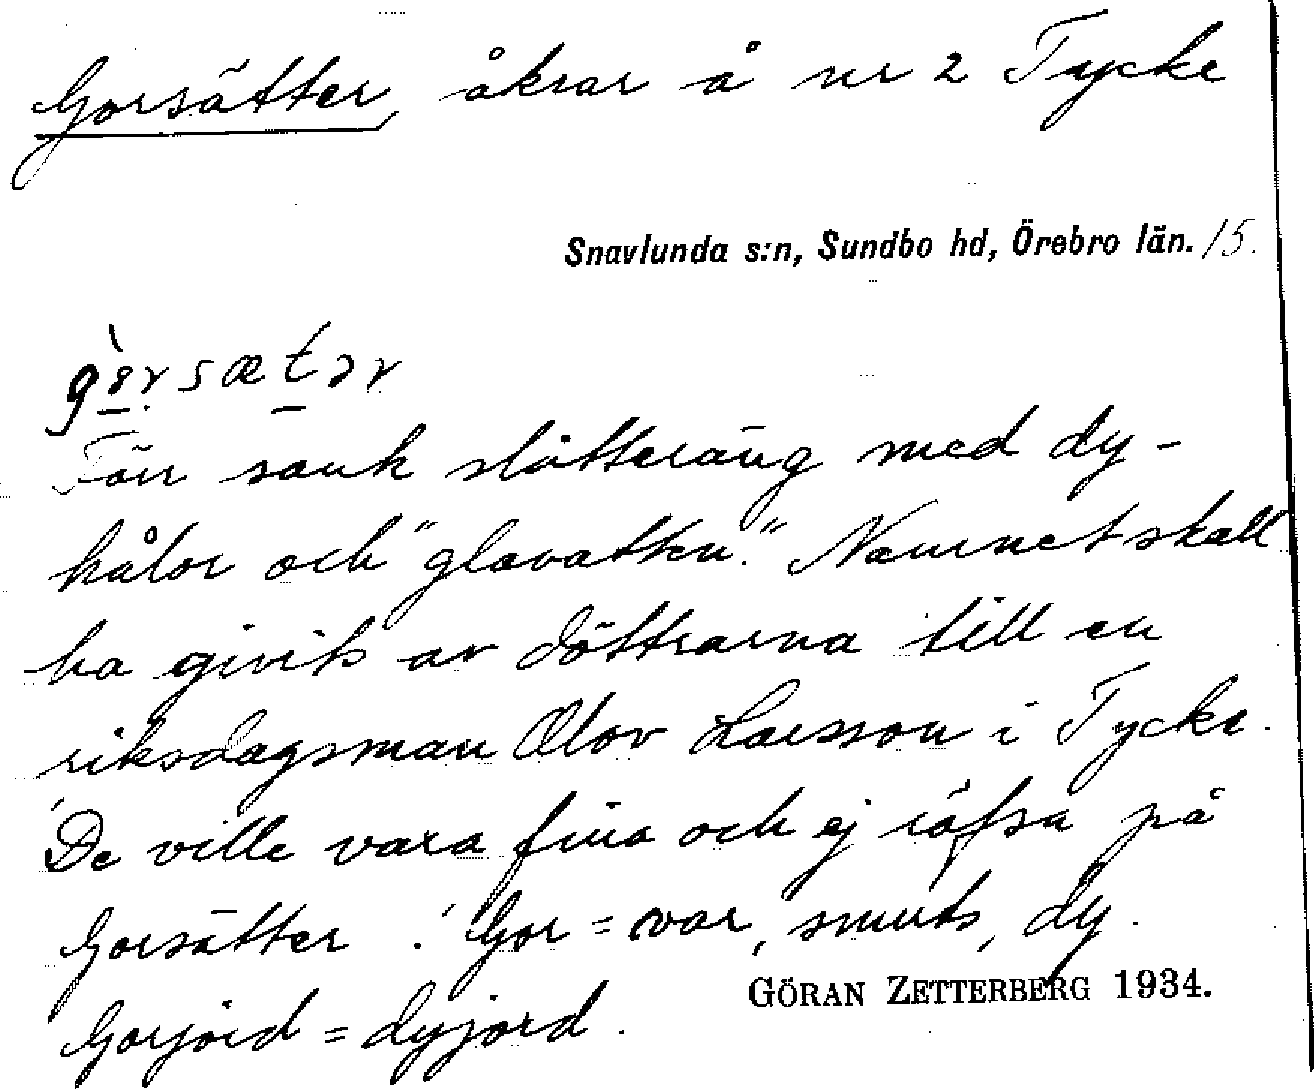 Gorsätter, åkrar å nr 2 Tycke
Snavlunda s:n, Sundbo hd, Örebro län. 15.
Förr sank slåtteräng med dy-
hålor och "glovatten." Namnet skall
ha givits av döttrarna till en
riksdagsman Olov Larsson i Tycke.
De ville vara fina och ej räfsa på
Gorsätter. Gor = var, smuts, dy.
Gorjord = dyjord.
GÖRAN ZETTERBERG 1934.